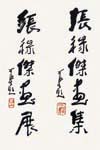 張祿傑畫集
張祿傑畫展